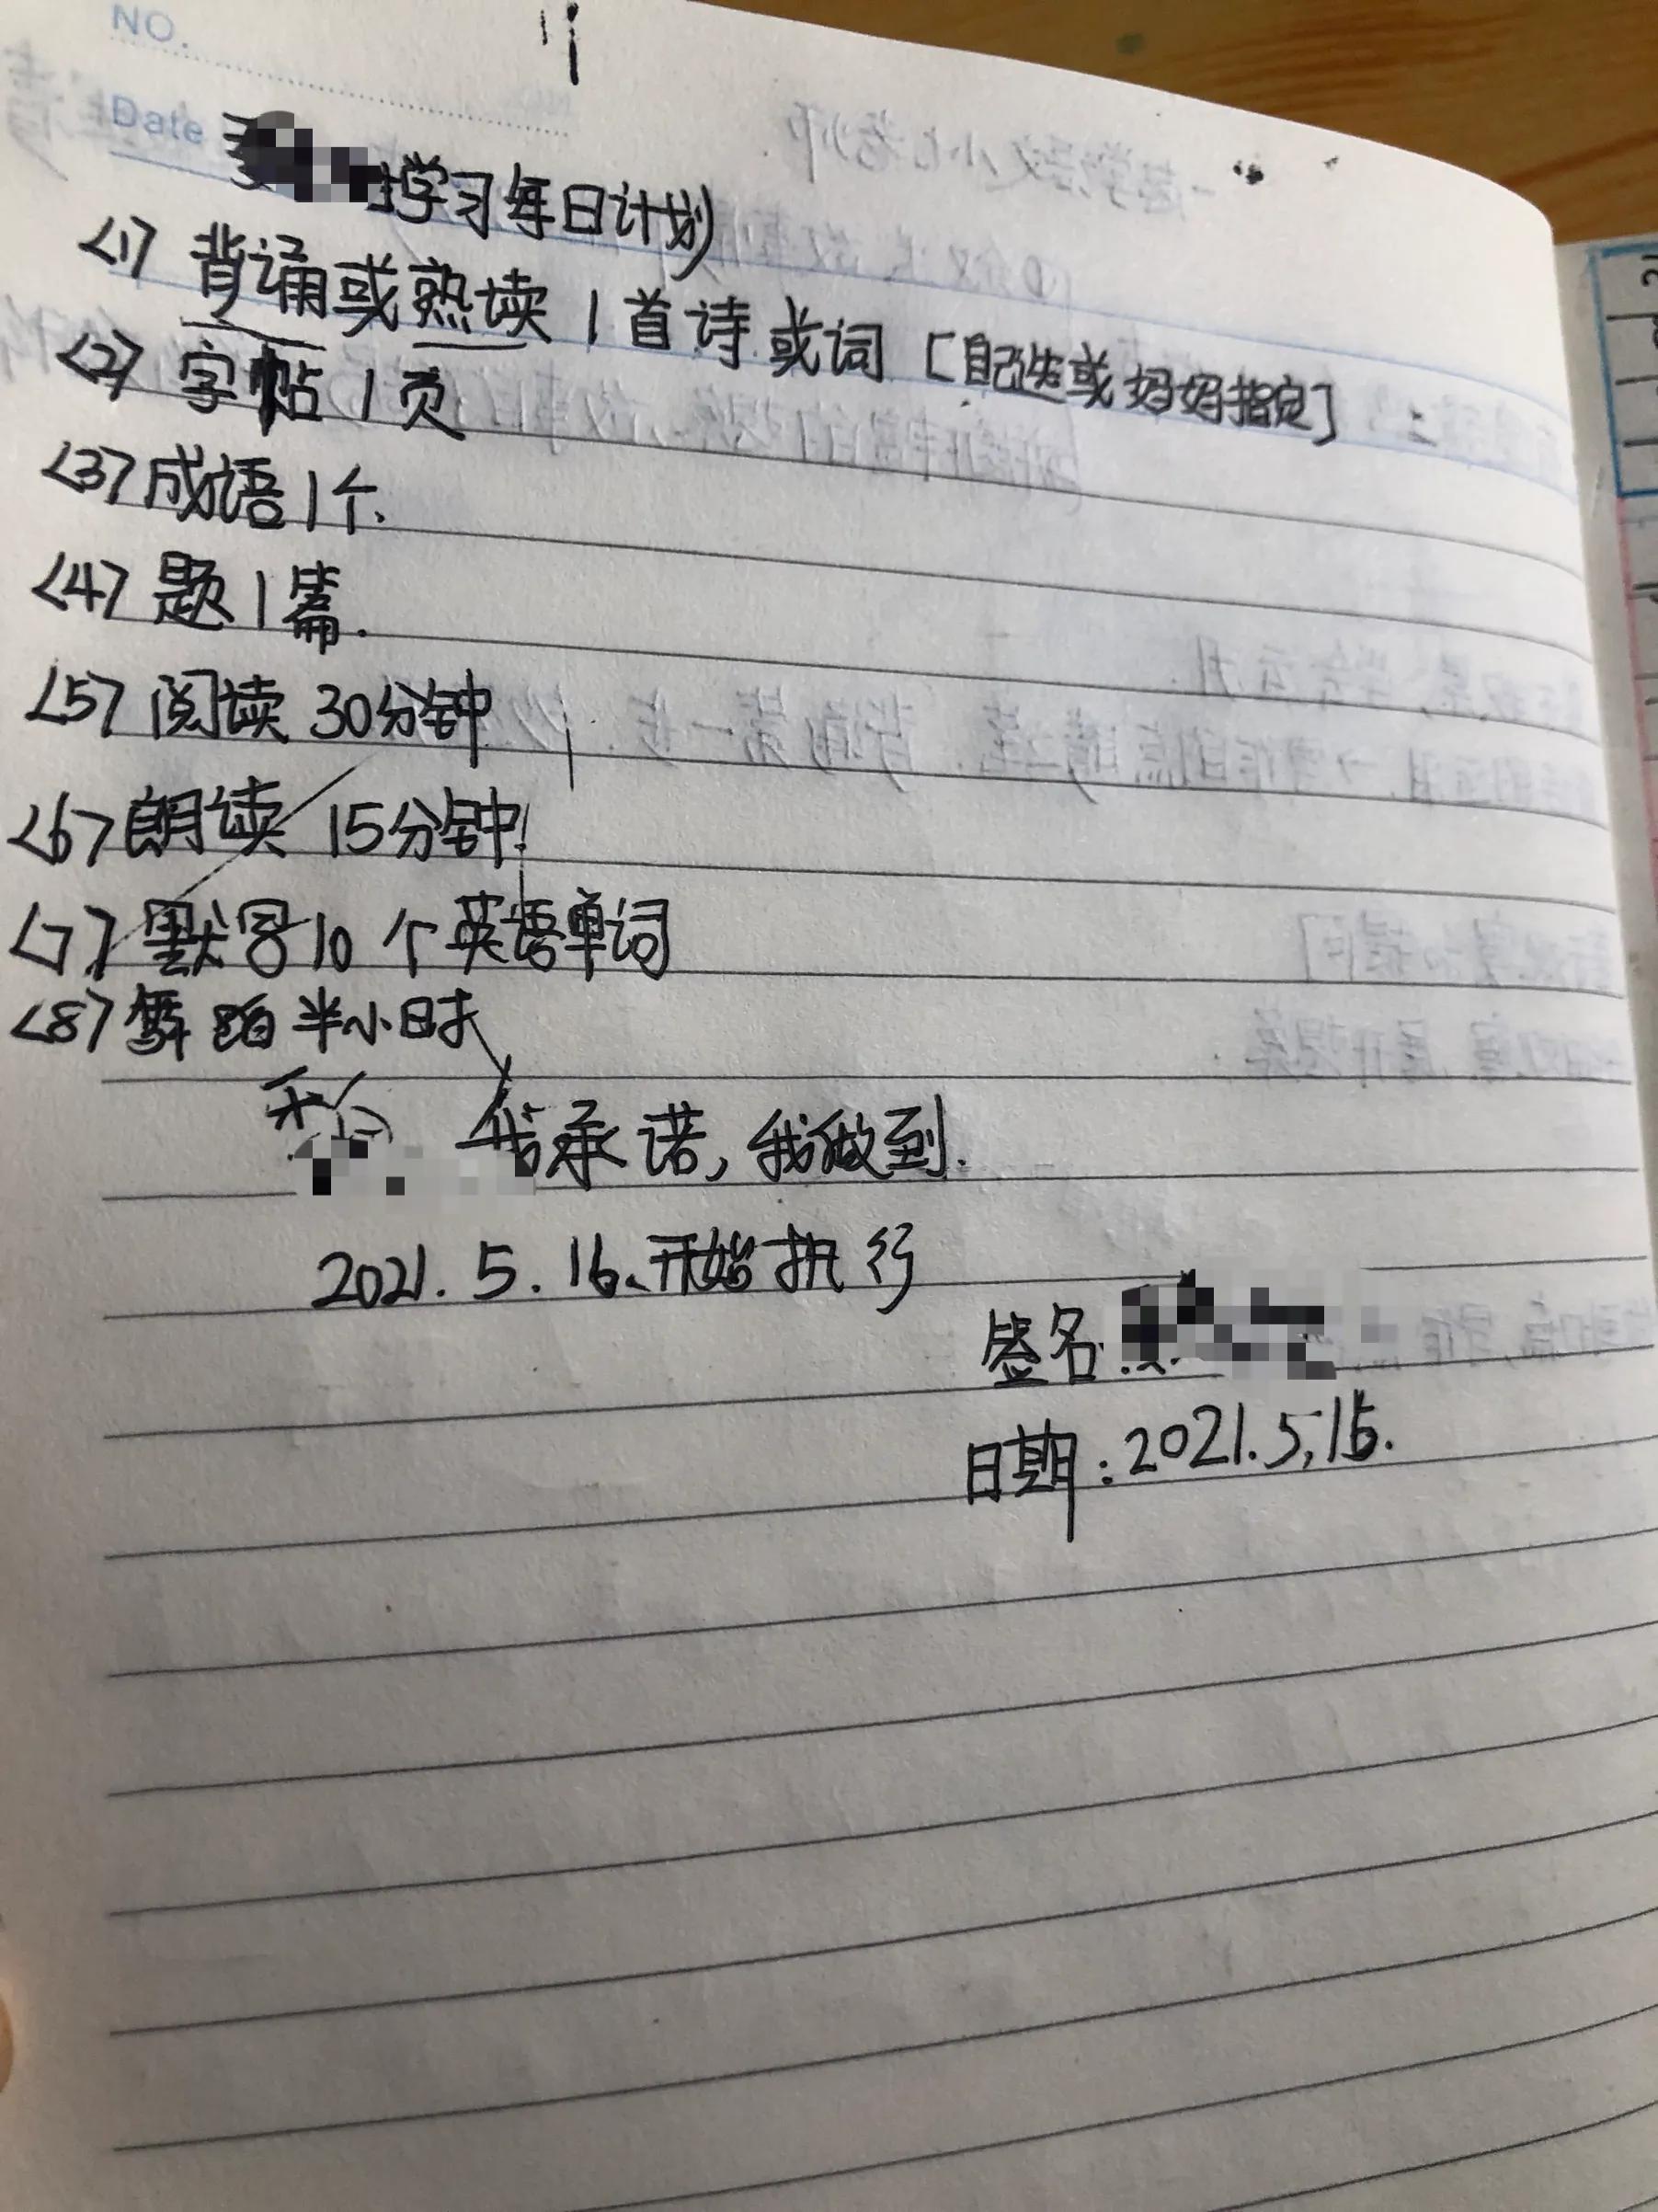 NO.
Date
学习每日计划
<1> 背诵或熟读1首诗或词[自己选或妈妈指定]
<2> 字帖1页
<3> 成语1个.
<4> 题1篇.
<5> 阅读 30分钟
<6> 朗读 15分钟
<7> 默写10个英语单词
<8> 舞蹈半小时
我承诺,我做到.
2021.5.16.开始执行
签名:
日期:2021.5,15.